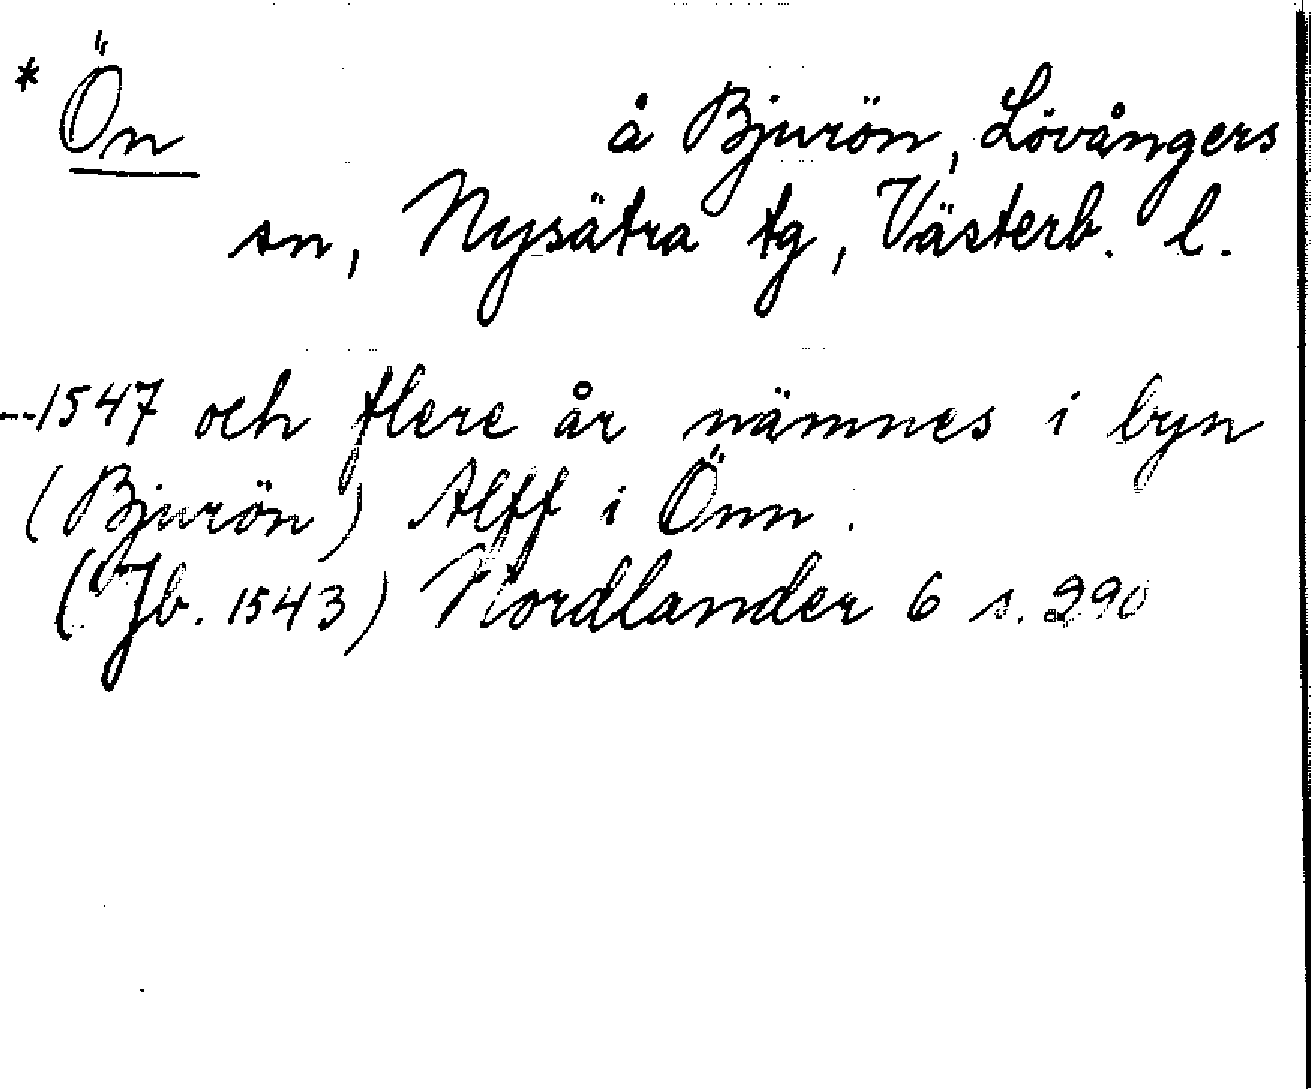 * Ön å Bjurön, Lövångers
sn, Nysätra tg, Västerb. l.
--1547 och flere år nämnes i byn
(Bjurön) Alff i Önn.
(Jb. 1543) Nordlander 6 s. 290